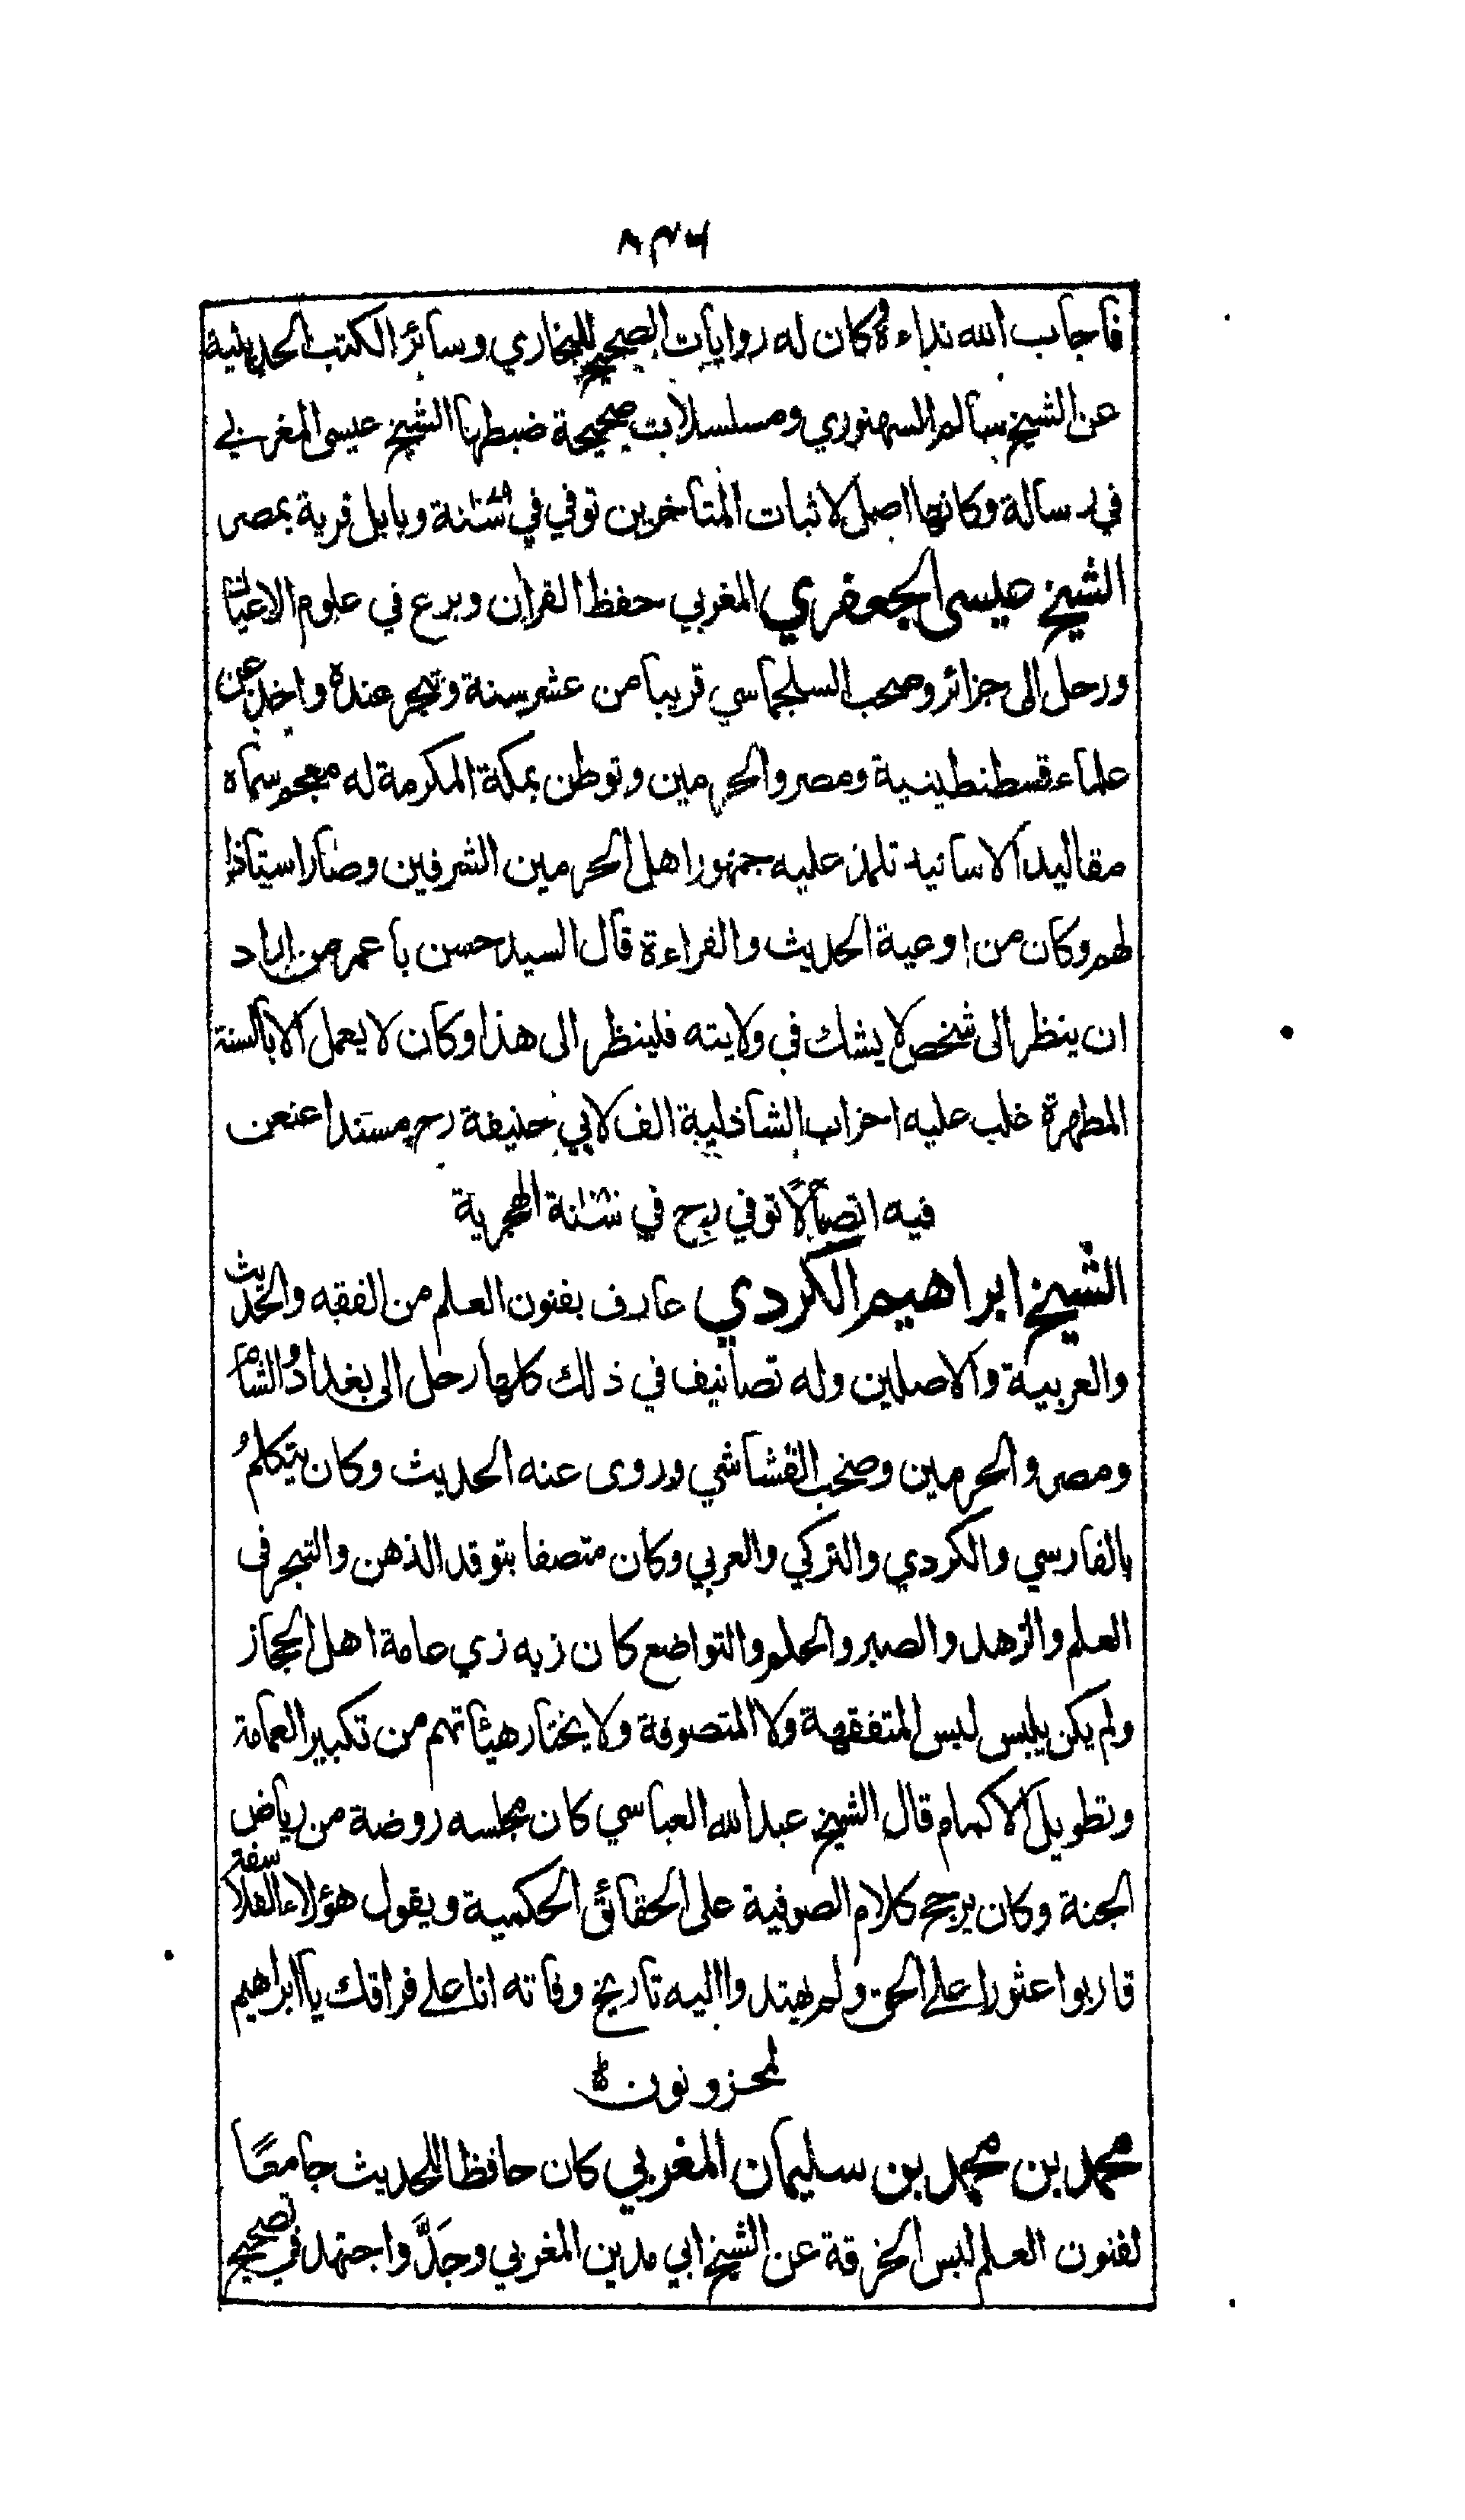 ٨٣٦
فاجاب الله نداءه كان له روايات الصحيح للبخاري وسائر الكتب الحديثية
عن الشيخ سالم السهنوري ومسلسلات صحيحة ضبطها الشيخ عيسى المغربي
في رسالة وكانها اصل لاثبات المتاخرين توفي في سنة وبابل قرية بمصر
الشيخ عيسى الجعفري المغربي حفظ القران وبرع في علوم الاعيان
ورحل الى جزائر وصحب السلجماسي قريبا من عشر سنة وتبحر عنده واخذ عن
علماء قسطنطينية ومصر والحرمين وتوطن بمكة المكرمة له معجم سماه
مقاليد الاسانيد تلمذ عليه جمهور اهل الحرمين الشرفين وصار استاذا
لهم وكان من اوعية الحديث والقراءة قال السيد حسن با عمر من اراد
ان ينظر الى شخص لا يشك في ولايته فلينظر الى هذا وكان لا يعمل الا بالسنة
المطهرة غلب عليه احزاب الشاذلية الف لابي حنيفة رح مسندا عنعن
فيه اتصالا توفي رح في سنة الهجرية
الشيخ ابراهيم الكردي عارف بفنون العلم من الفقه والحديث
والعربية والاصلين وله تصانيف في ذلك كلها رحل الى بغداد والشام
ومصر والحرمين وصحب القشاشي وروى عنه الحديث وكان يتكلم
بالفارسي والكردي والتركي والعربي وكان متصفا بتوقد الذهن والتبحر في
العلم والزهد والصبر والحلم والتواضع كان زيه زي عامة اهل الحجاز
ولم يكن يلبس لبس المتفقهة ولا المتصوفة ولا يختار هيئاتهم من تكبير العمامة
وتطويل الاكمام قال الشيخ عبد الله العباسي كان مجلسه روضة من رياض
الجنة وكان يرجح كلام الصوفية على الحقائق الحكمية ويقول هؤلاء الفلاسفة
قاربوا عثورا على الحق ولم يهتدوا اليه تاريخ وفاته انا على فراقك يا ابراهيم
لمحزونون
محمد بن محمد بن سليمان المغربي كان حافظا للحديث جامعًا
لفنون العلم لبس الخرقة عن الشيخ ابي مدين المغربي وجَدَّ واجتهد في تصحيح